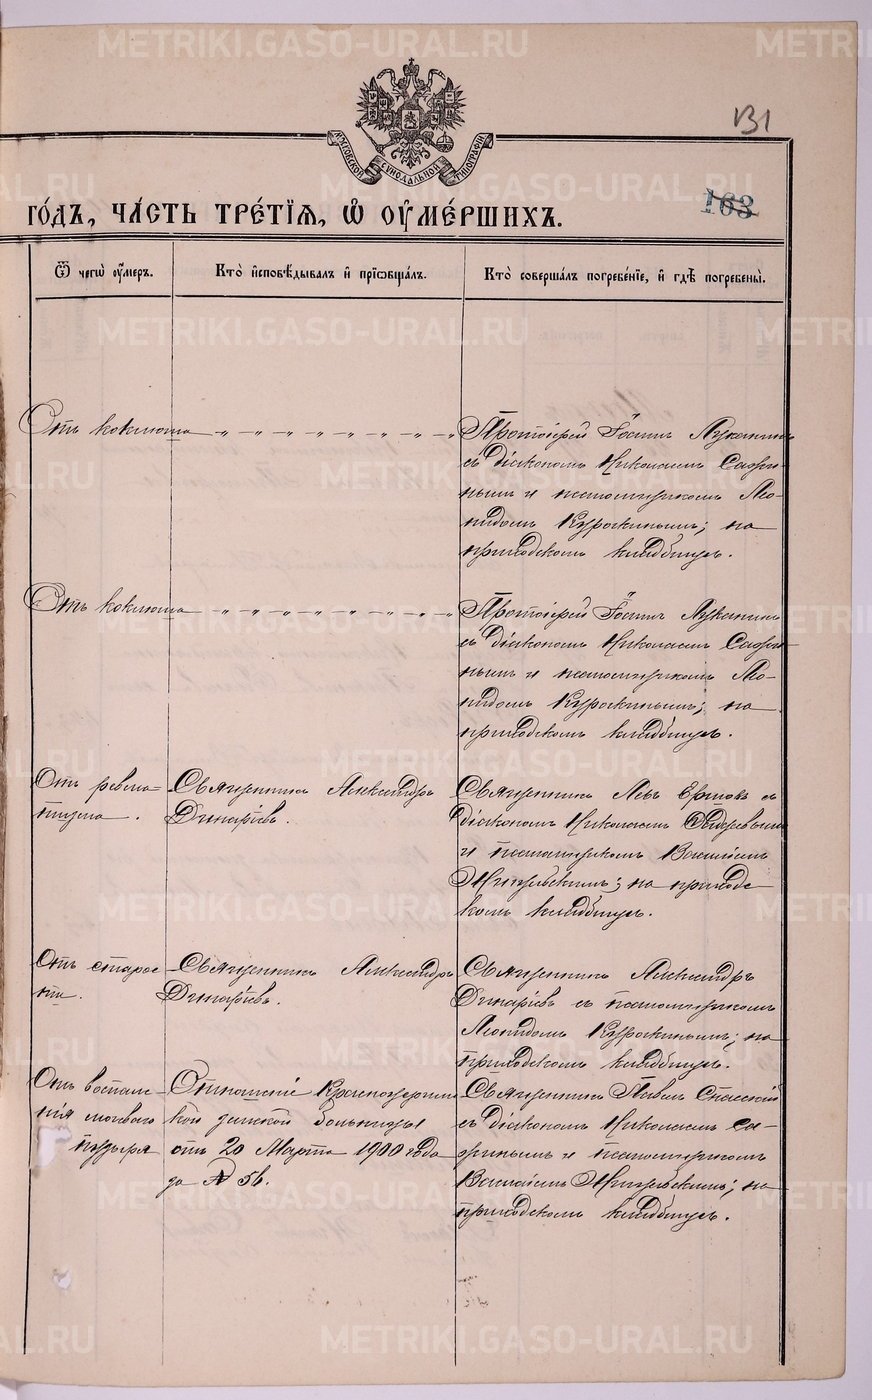 131
МОСКОВСКОЙ СУНОДАЛЬНОЙ ТИПОГРАФІИ
163
го́дъ, ча́сть тре́тїѧ, ѡ҆ ᲂу҆ме́ршихъ.
Ѿ чегѡ̀ ᲂу҆́мер.
Кто̀ и҆сповѣ́дывалъ и҆ прїѡбща́лъ.
Кто̀ соверша́лъ погребе́нїе, и҆ гдѣ̀ погребены̀.
Отъ коклюша
Протоіерей Іоаннъ Луканинъ
съ діакономъ Николаемъ Сафи-
нымъ и псаломщикомъ Лео-
нидомъ Курочкинымъ; на
приходскомъ кладбищѣ.
Отъ коклюша
Протоіерей Іоаннъ Луканинъ
съ діакономъ Николаемъ Сафи-
нымъ и псаломщикомъ Лео-
нидомъ Курочкинымъ; на
приходскомъ кладбищѣ.
Отъ ревма-
тизма.
Священникъ Александръ
Динаріевъ.
Священникъ Левъ Ершовъ съ
діакономъ Николаемъ
и псаломщикомъ Василіемъ
на приход-
скомъ кладбищѣ.
Отъ старос-
ти.
Священникъ Александръ
Динаріевъ.
Священникъ Александръ
Динаріевъ съ псаломщикомъ
Леонидомъ Курочкинымъ; на
приходскомъ кладбищѣ.
Отъ воспале-
нія мочеваго
пузыря
Отношеніе Красноуфимс-
кой земской больницы
отъ 20 Марта 1900 года
за № 56.
Священникъ Павелъ Спасскій
съ діакономъ Николаемъ Са-
финымъ и псаломщикомъ
Василіемъ на
приходскомъ кладбищѣ.
METRIKI.GASO-URAL.RU